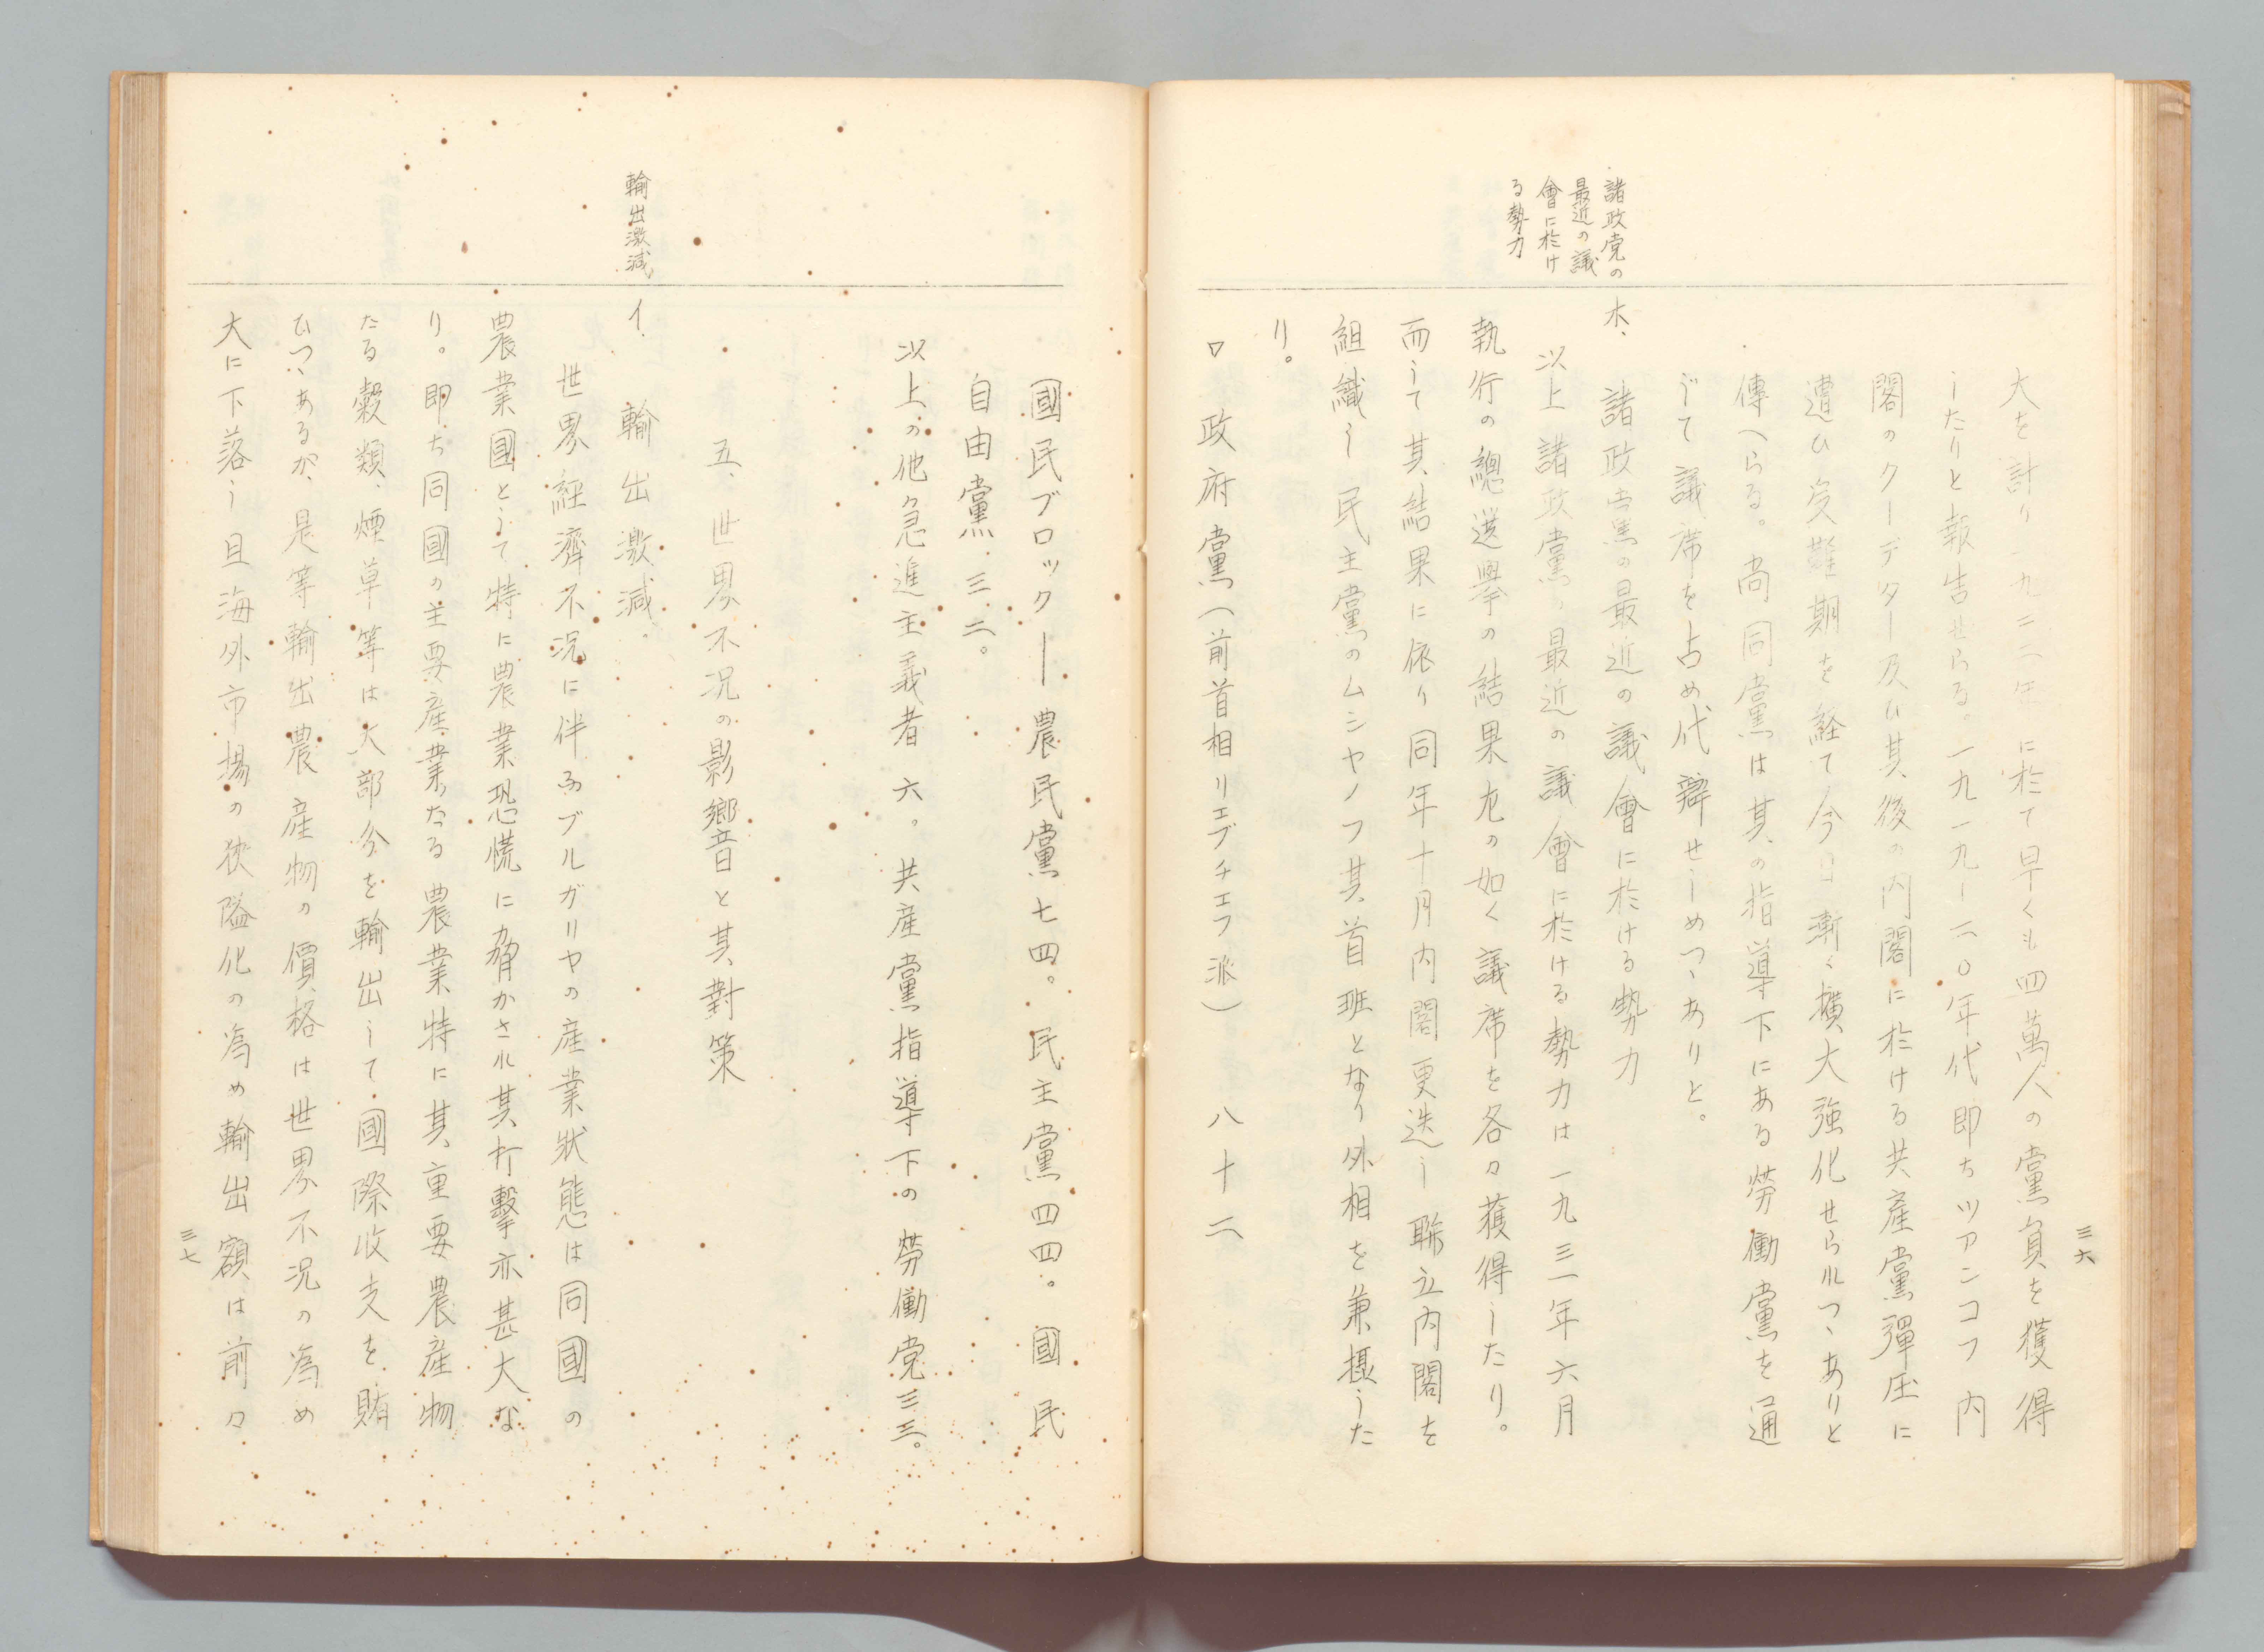 三六
大を計り一九二二年に於て早くも四萬人の黨員を獲得
したりと報告せらる。一九一九ー二〇年代即ちツアンコフ内
閣のクーデター及ひ其後の内閣に於ける共産黨彈圧に
遭ひ受難期を経て今日漸く擴大強化せられつゝありと
傳へらる。尚同黨は其の指導下にある勞働黨を通
じて議席を占め代辯せしめつゝありと。
諸政党の
最近の議
會に於け
る勢力
木、諸政黨の最近の議會に於ける勢力
以上諸政黨の最近の議會に於ける勢力は一九三一年六月
執行の總選擧の結果左の如く議席を各々獲得したり。
而して其結果に依り同年十月内閣更迭し聯立内閣を
組織し民主黨のムシヤノフ其首班となり外相を兼摂した
り。
口政府黨（前首相リエプチエフ派）　八十二
國民ブロックー｜農民黨七四。民主黨四四。國民
自由黨　三二。
以上の他急進主義者　六。共産黨指導下の勞働党三三。
五、世界不況の影響と其對策
輸出激減
イ.　輸出激減.
世界経濟不況に伴ふブルガリヤの産業狀態は同國の
農業國として特に農業恐慌に脅かされ其打擊亦甚大な
り。即ち同國の主要産業たる農業特に其重要農産物
たる穀類、煙草等は大部分を輸出して國際收支を賄
ひつゝあるが、是等輸出農産物の價格は世界不況の為め
大に下落し且海外市場の狹隘化の為め輸出額は前々
三七